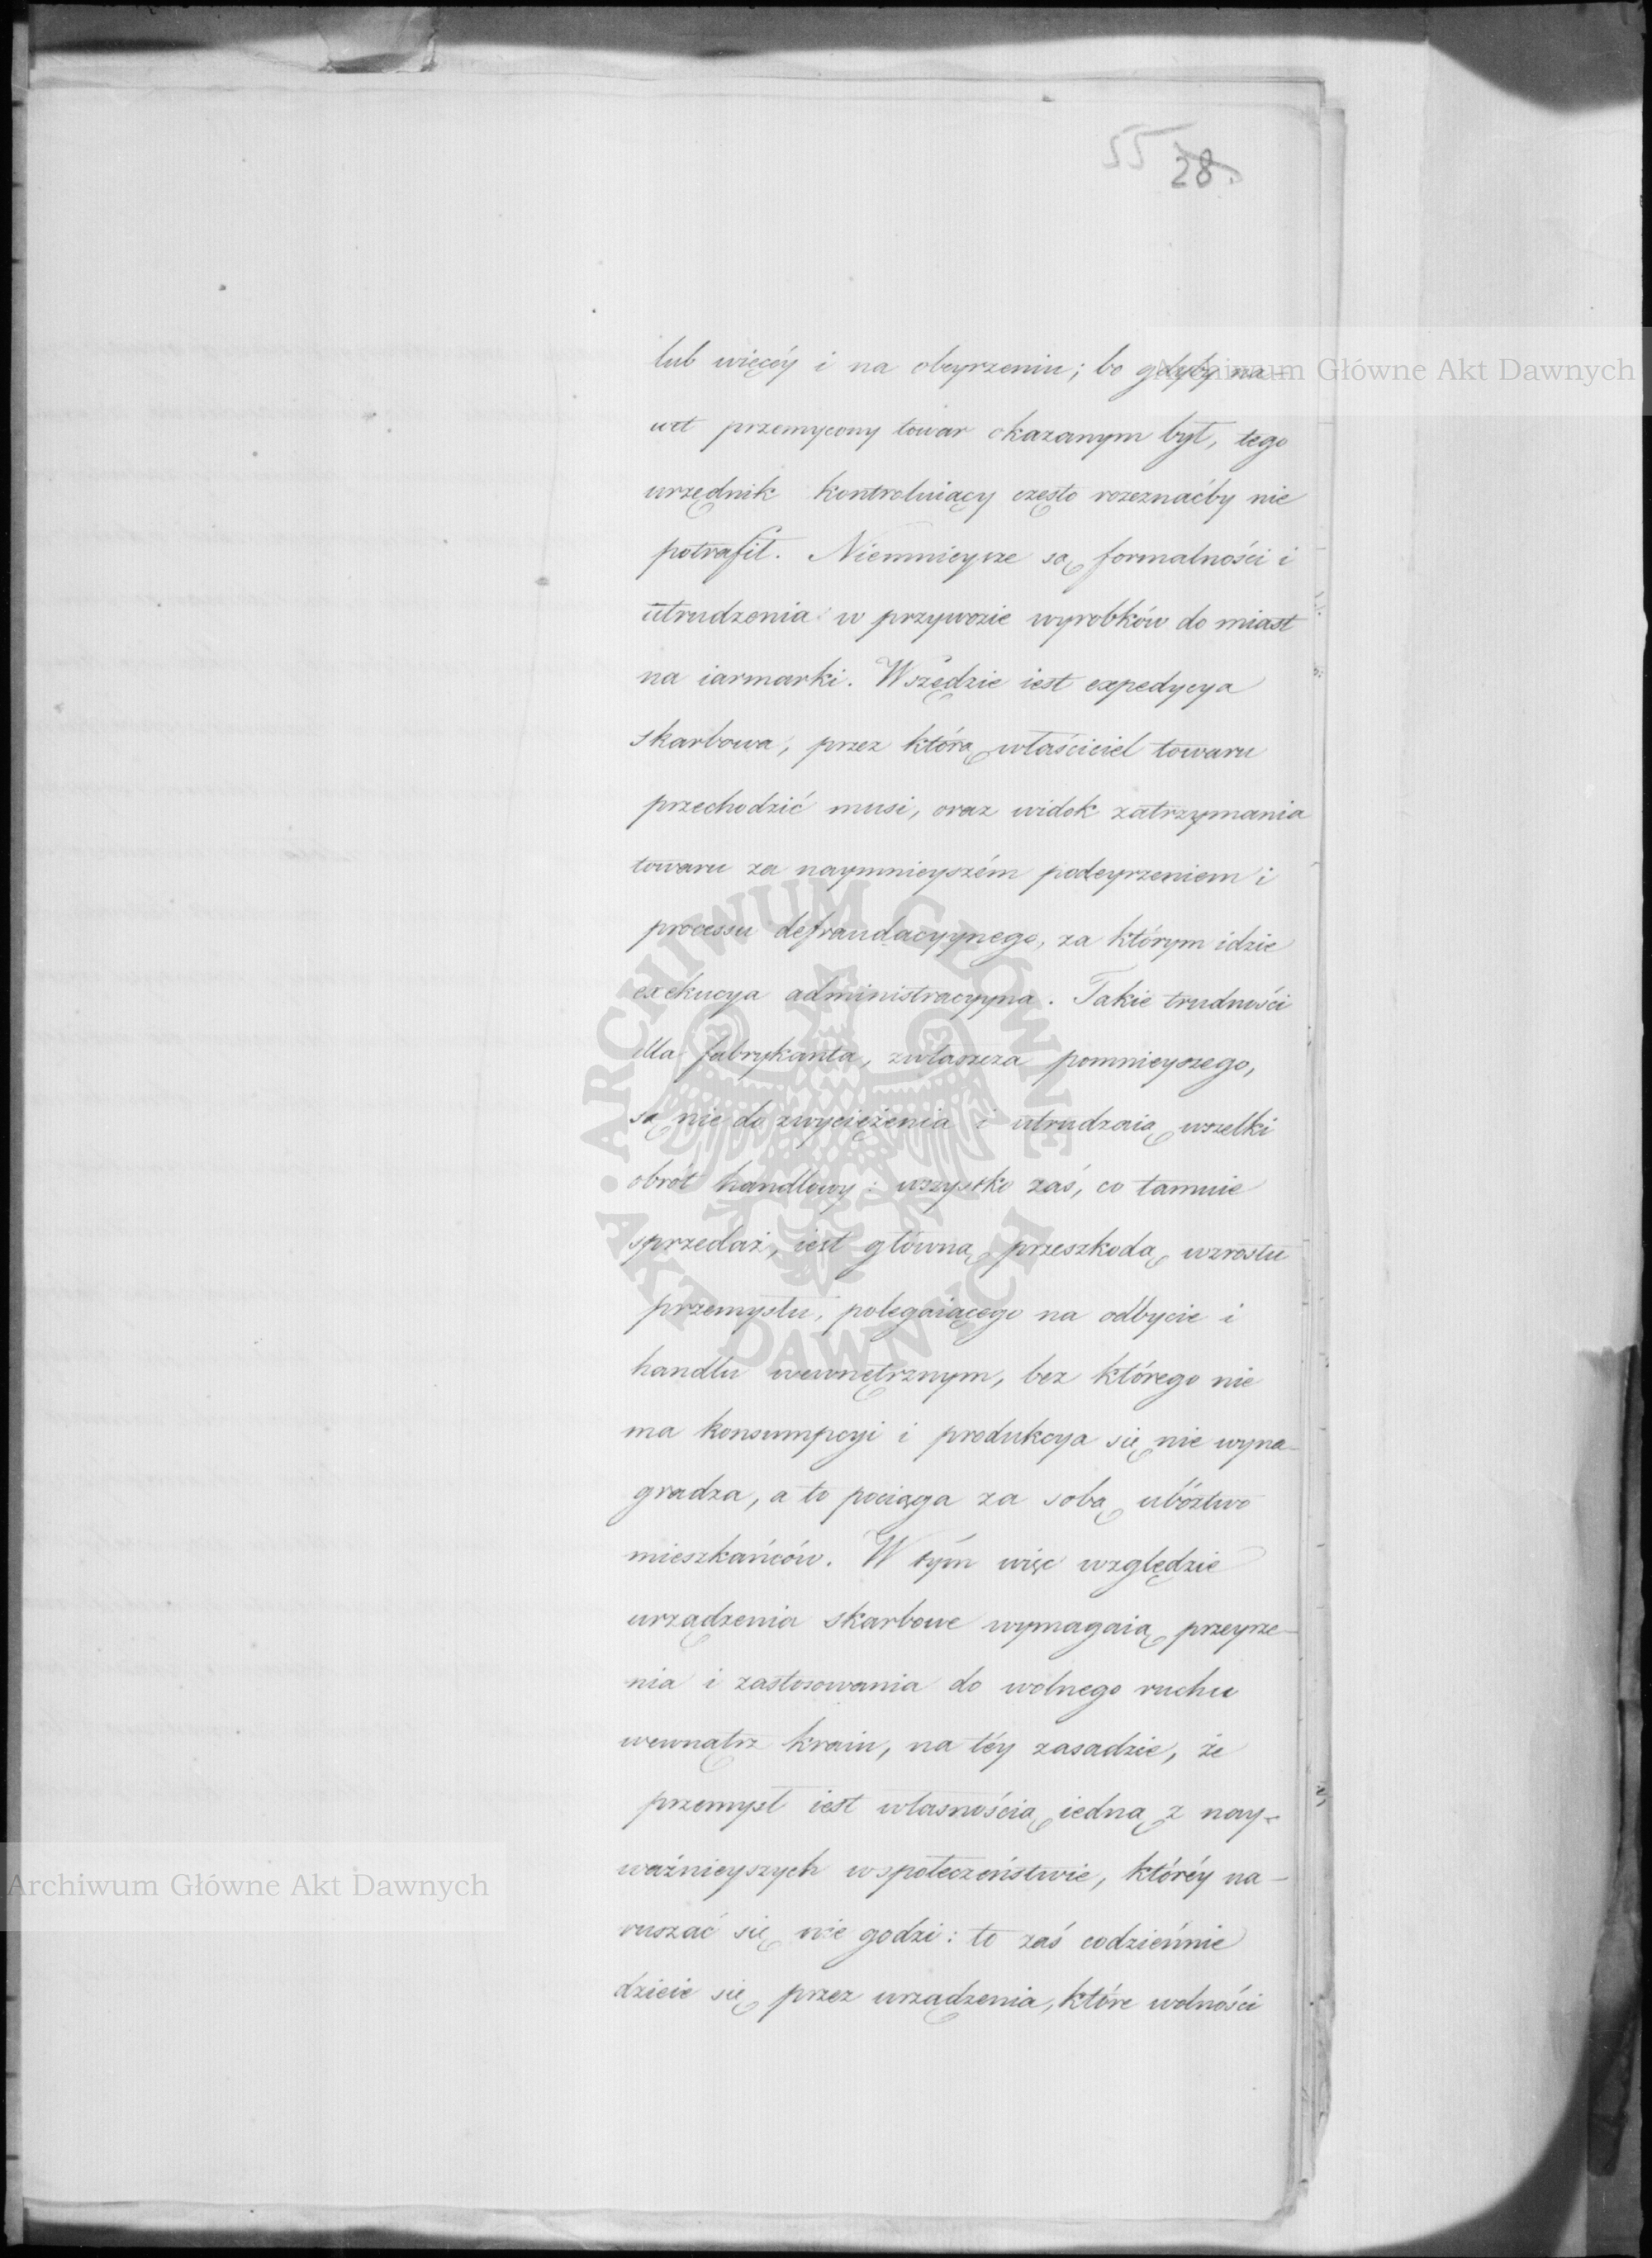 55 28.
lub więcéy i na obeyrzeniu; bo gdyby na-
wet przemycony towar okazanym był, tego
urzędnik kontroluiący często rozeznaćby nie
potrafił. Niemnieysze są formalności i
utrudzenia w przywozie wyrobków do miast
na iarmarki. Wszędzie iest expedycya
skarbowa, przez którą właściciel towaru
przechodzić musi, oraz widok zatrzymania
towaru za naymnieyszém podeyrzeniem i
processu defraudacyynego, za którym idzie
exekucya administracyyna. Takie trudności
dla fabrykanta, zwłaszcza pomnieyszego,
są nie do zwyciężenia i utrudzaią wszelki
obrót handlowy: wszystko zaś, co tamuie
sprzedaż, iest główną przeszkodą wzrostu
przemysłu, polegaiącego na odbycie i
handlu wewnętrznym, bez którego nie
ma konsumpcyi i produkcya się nie wyna-
gradza, a to pociąga za sobą ubóztwo
mieszkańców. W tým więc względzie
urządzenia skarbowe wymagaią przeyrze-
nia i zastosowania do wolnego ruchu
wewnątrz kraiu, na téy zasadzie, że
przemysł iest własnością iedną z nay-
ważnieyszych w społeczeństwie, któréy na-
ruszać się nie godzi: to zaś codziennie
dzieie się przez urządzenia, które wolności
Archiwum Główne Akt Dawnych
ARCHIWUM GŁÓWNE · AKT DAWNYCH
Archiwum Główne Akt Dawnych